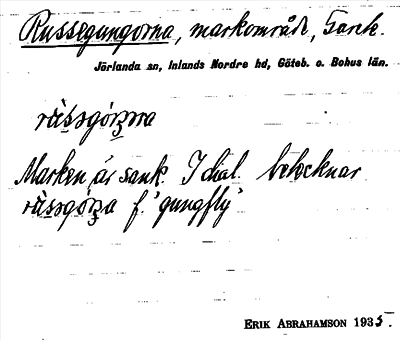 Russegungorna, markområde, Sank.
Jörlanda sn, Inlands Nordre hd, Göteb. o. Bohus län.
Marken är sank. I dial. betecknar
f. 'gungfly'
ERIK ABRAHAMSON 1935.